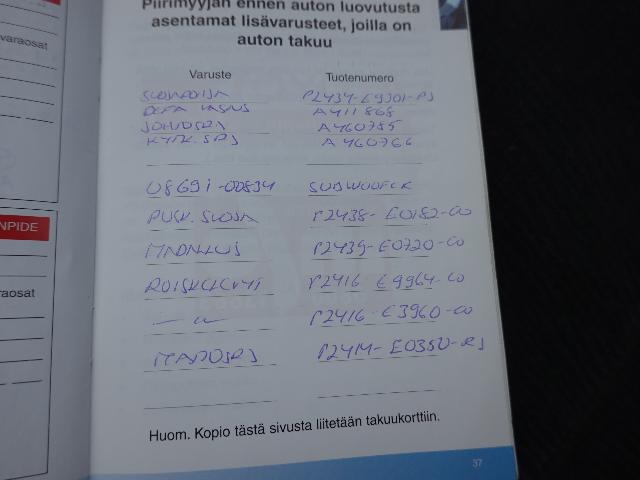 varaosat
NPIDE
raosat
Piirimyyjän ennen auton luovutusta
asentamat lisävarusteet, joilla on
auton takuu
Varuste Tuotenumero
P2434-E9301-PJ
DEFA A411868
JOHDSRJ A460785
A460766
08691-00834 SUBWOOFER
PUSK. SUOJA P2438-E0182-CO
P2439-E0720-CO
ROISKELEVYT P2416 E9964-CO
P2416-E3960-CO
P2414-E0350-RJ
Huom. Kopio tästä sivusta liitetään takuukorttiin.
37